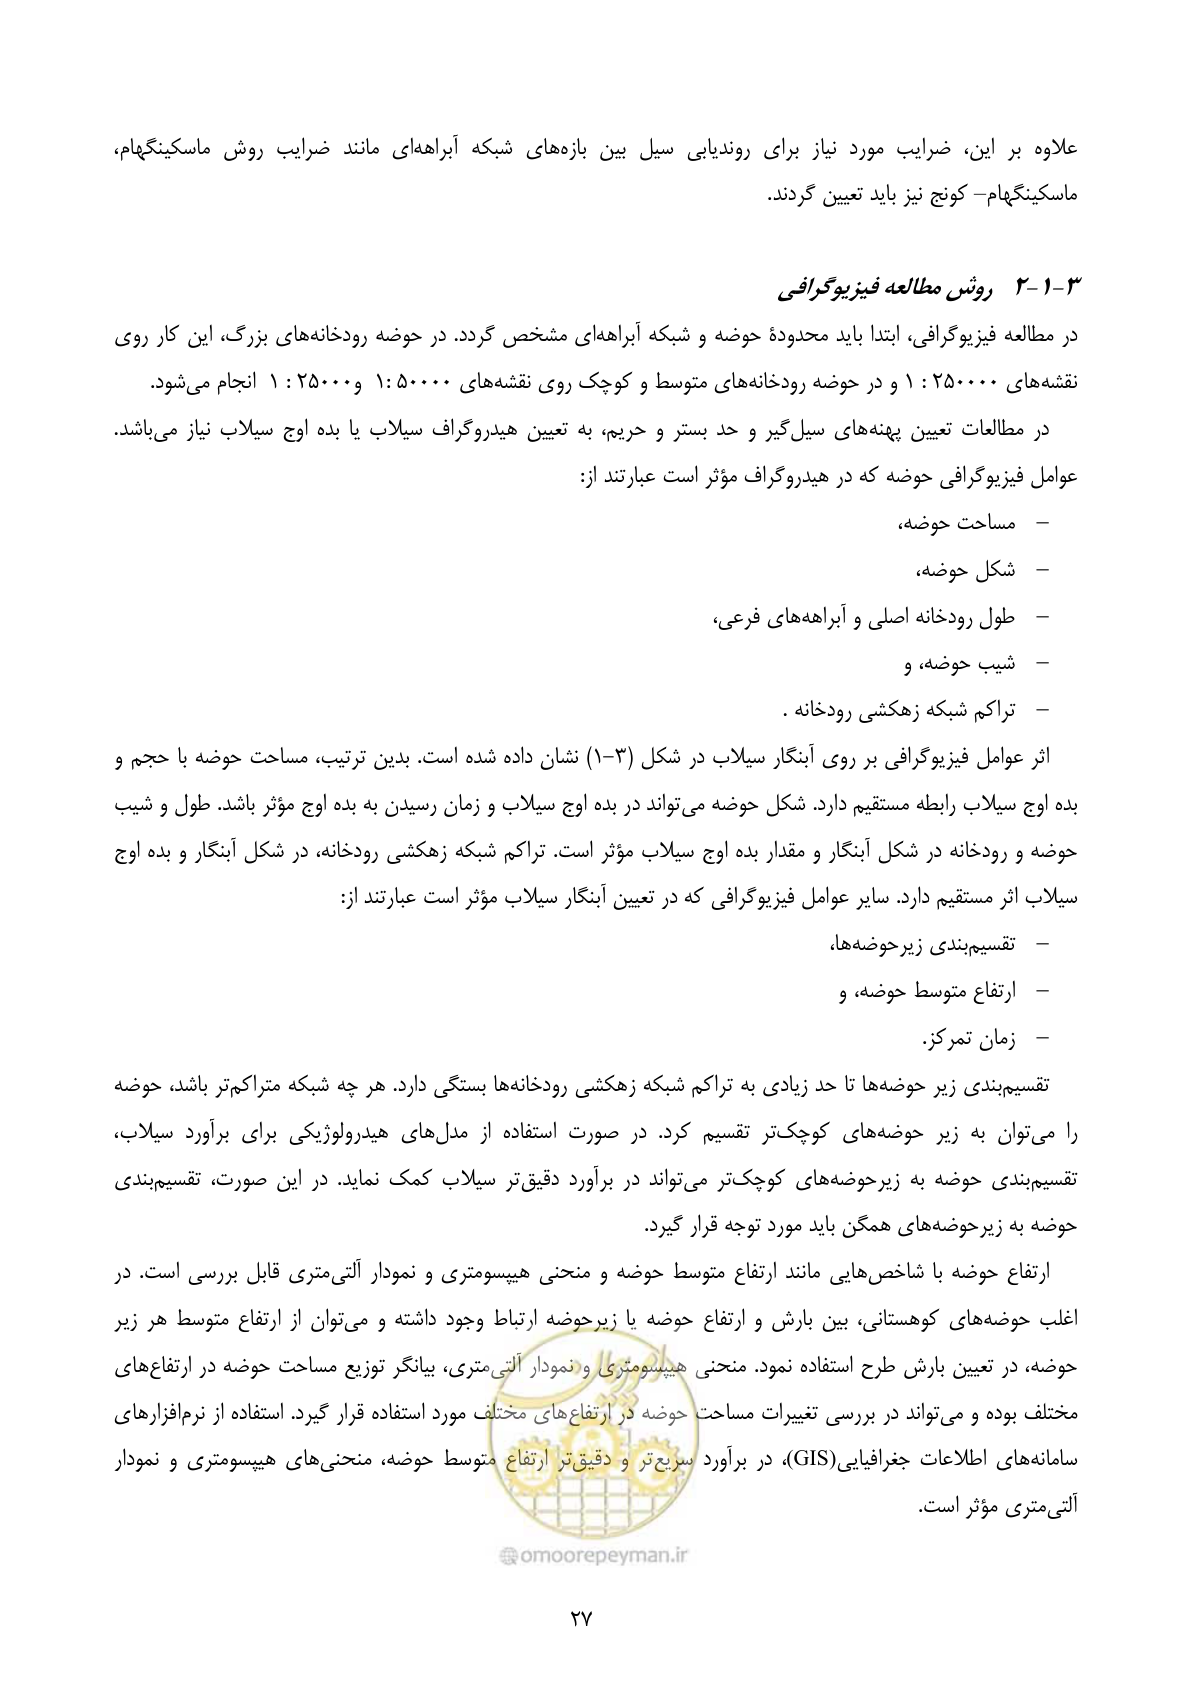 علاوه بر این، ضرایب مورد نیاز برای روندیابی سیل بین بازه‌های شبکه آبراهه‌ای مانند ضرایب روش ماسکینگهام،
ماسکینگهام– کونج نیز باید تعیین گردند.
۳-۱-۲ روش مطالعه فیزیوگرافی
در مطالعه فیزیوگرافی، ابتدا باید محدودهٔ حوضه و شبکه آبراهه‌ای مشخص گردد. در حوضه رودخانه‌های بزرگ، این کار روی
نقشه‌های ۲۵۰۰۰۰ : ۱ و در حوضه رودخانه‌های متوسط و کوچک روی نقشه‌های ۵۰۰۰۰ :۱ و۲۵۰۰۰ : ۱ انجام می‌شود.
در مطالعات تعیین پهنه‌های سیل‌گیر و حد بستر و حریم، به تعیین هیدروگراف سیلاب یا بده اوج سیلاب نیاز می‌باشد.
عوامل فیزیوگرافی حوضه که در هیدروگراف مؤثر است عبارتند از:
– مساحت حوضه،
– شکل حوضه،
– طول رودخانه اصلی و آبراهه‌های فرعی،
– شیب حوضه، و
– تراکم شبکه زهکشی رودخانه .
اثر عوامل فیزیوگرافی بر روی آبنگار سیلاب در شکل (۳-۱) نشان داده شده است. بدین ترتیب، مساحت حوضه با حجم و
بده اوج سیلاب رابطه مستقیم دارد. شکل حوضه می‌تواند در بده اوج سیلاب و زمان رسیدن به بده اوج مؤثر باشد. طول و شیب
حوضه و رودخانه در شکل آبنگار و مقدار بده اوج سیلاب مؤثر است. تراکم شبکه زهکشی رودخانه، در شکل آبنگار و بده اوج
سیلاب اثر مستقیم دارد. سایر عوامل فیزیوگرافی که در تعیین آبنگار سیلاب مؤثر است عبارتند از:
– تقسیم‌بندی زیرحوضه‌ها،
– ارتفاع متوسط حوضه، و
– زمان تمرکز.
تقسیم‌بندی زیر حوضه‌ها تا حد زیادی به تراکم شبکه زهکشی رودخانه‌ها بستگی دارد. هر چه شبکه متراکم‌تر باشد، حوضه
را می‌توان به زیر حوضه‌های کوچک‌تر تقسیم کرد. در صورت استفاده از مدل‌های هیدرولوژیکی برای برآورد سیلاب،
تقسیم‌بندی حوضه به زیرحوضه‌های کوچک‌تر می‌تواند در برآورد دقیق‌تر سیلاب کمک نماید. در این صورت، تقسیم‌بندی
حوضه به زیرحوضه‌های همگن باید مورد توجه قرار گیرد.
ارتفاع حوضه با شاخص‌هایی مانند ارتفاع متوسط حوضه و منحنی هیپسومتری و نمودار آلتی‌متری قابل بررسی است. در
اغلب حوضه‌های کوهستانی، بین بارش و ارتفاع حوضه یا زیرحوضه ارتباط وجود داشته و می‌توان از ارتفاع متوسط هر زیر
حوضه، در تعیین بارش طرح استفاده نمود. منحنی هیپسومتری و نمودار آلتی‌متری، بیانگر توزیع مساحت حوضه در ارتفاع‌های
مختلف بوده و می‌تواند در بررسی تغییرات مساحت حوضه در ارتفاع‌های مختلف مورد استفاده قرار گیرد. استفاده از نرم‌افزارهای
سامانه‌های اطلاعات جغرافیایی(GIS)، در برآورد سریع‌تر و دقیق‌تر ارتفاع متوسط حوضه، منحنی‌های هیپسومتری و نمودار
آلتی‌متری مؤثر است.
امور پیمان
@omoorepeyman.ir
۲۷